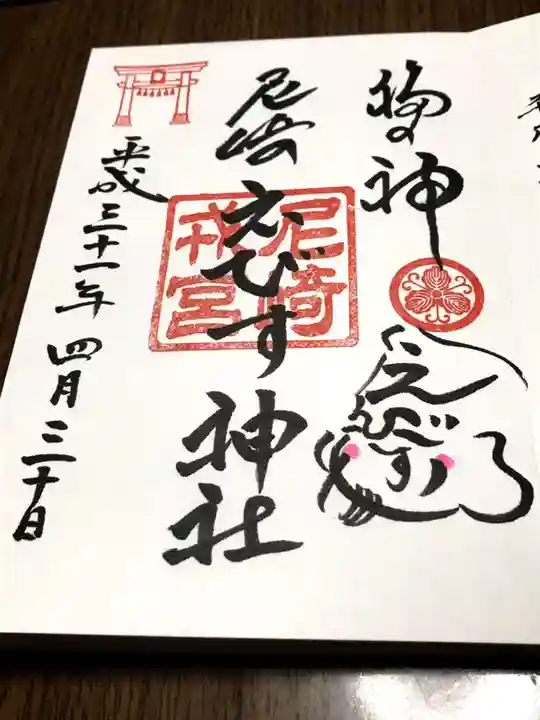 福の神
えびす
尼崎えびす神社
尼崎
戎宮
平成三十一年四月三十日